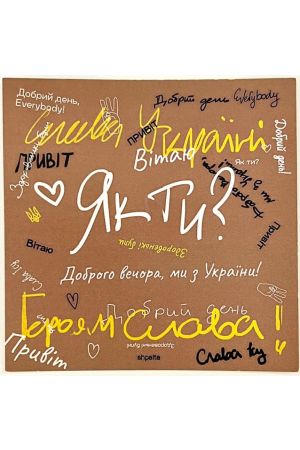 Добрий день,
Everybody!
Добрий день Everybody
Слава Україні
ПРИВІТ
Добрий день!
ПРИВІТ
Вітаю
Як ти?
Як ти?
Привіт
Вітаю
Здоровенькі були
Слава Ісу
Доброго вечора, ми з України!
Добрий день
Героям Слава!
Привіт
Здоровенькі були
shpelta